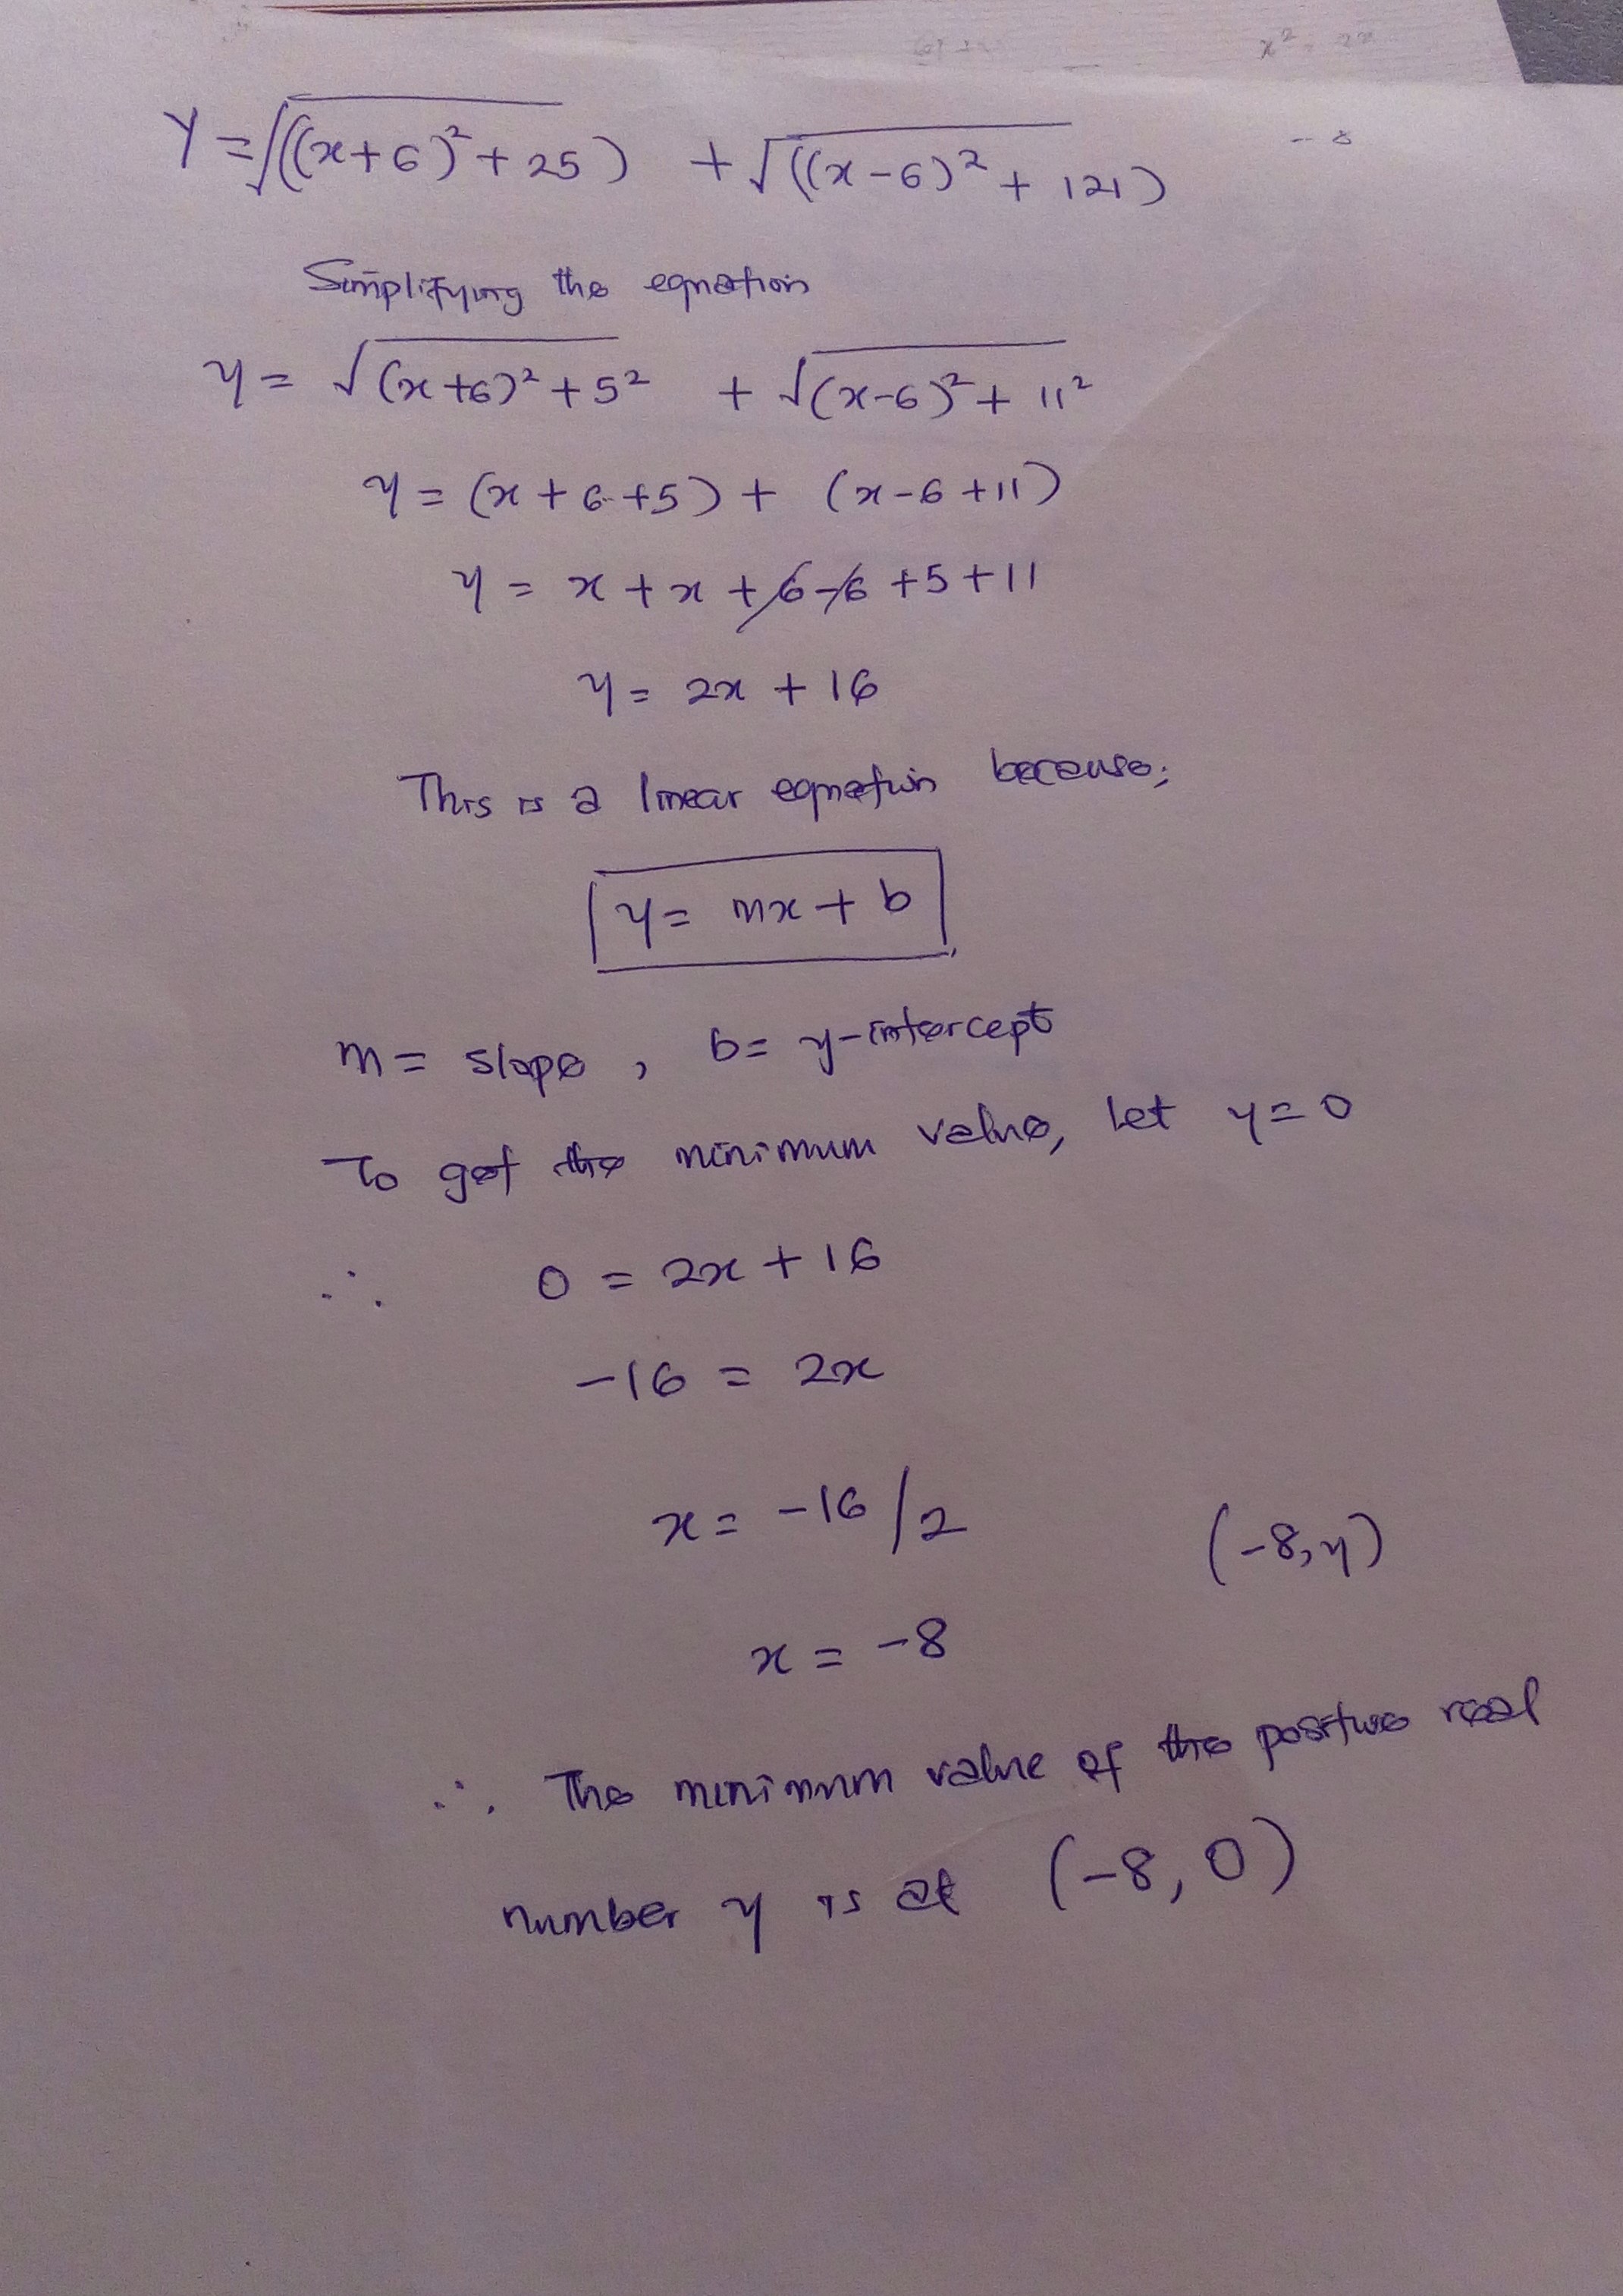 x² = 2x
Y = √((x+6)² + 25) + √((x-6)² + 121)
Simplifying the equation
y = √(x+6)² + 5² + √(x-6)² + 11²
y = (x + 6 + 5) + (x - 6 + 11)
y = x + x + 6 - 6 + 5 + 11
y = 2x + 16
This is a linear equation because;
y = mx + b
m = slope , b = y-intercept
To get the minimum value, let y = 0
∴ 0 = 2x + 16
-16 = 2x
x = -16/2 (-8, y)
x = -8
∴ The minimum value of the positive real
number y is at (-8, 0)